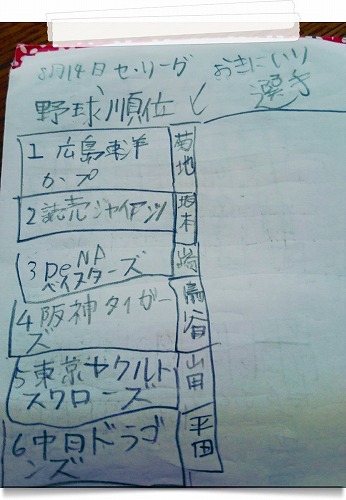 8月14日 セ、リーグ
おきにいり
選手
野球順位
1 広島東洋
カプ
菊地
2読売ジャイアンツ
坂本
3 DeNA
ベイスターズ
崎
4阪神タイガー
ズ
鳥谷
5東京ヤクルト
スワローズ
山田
6中日ドラゴ
ンズ
平田